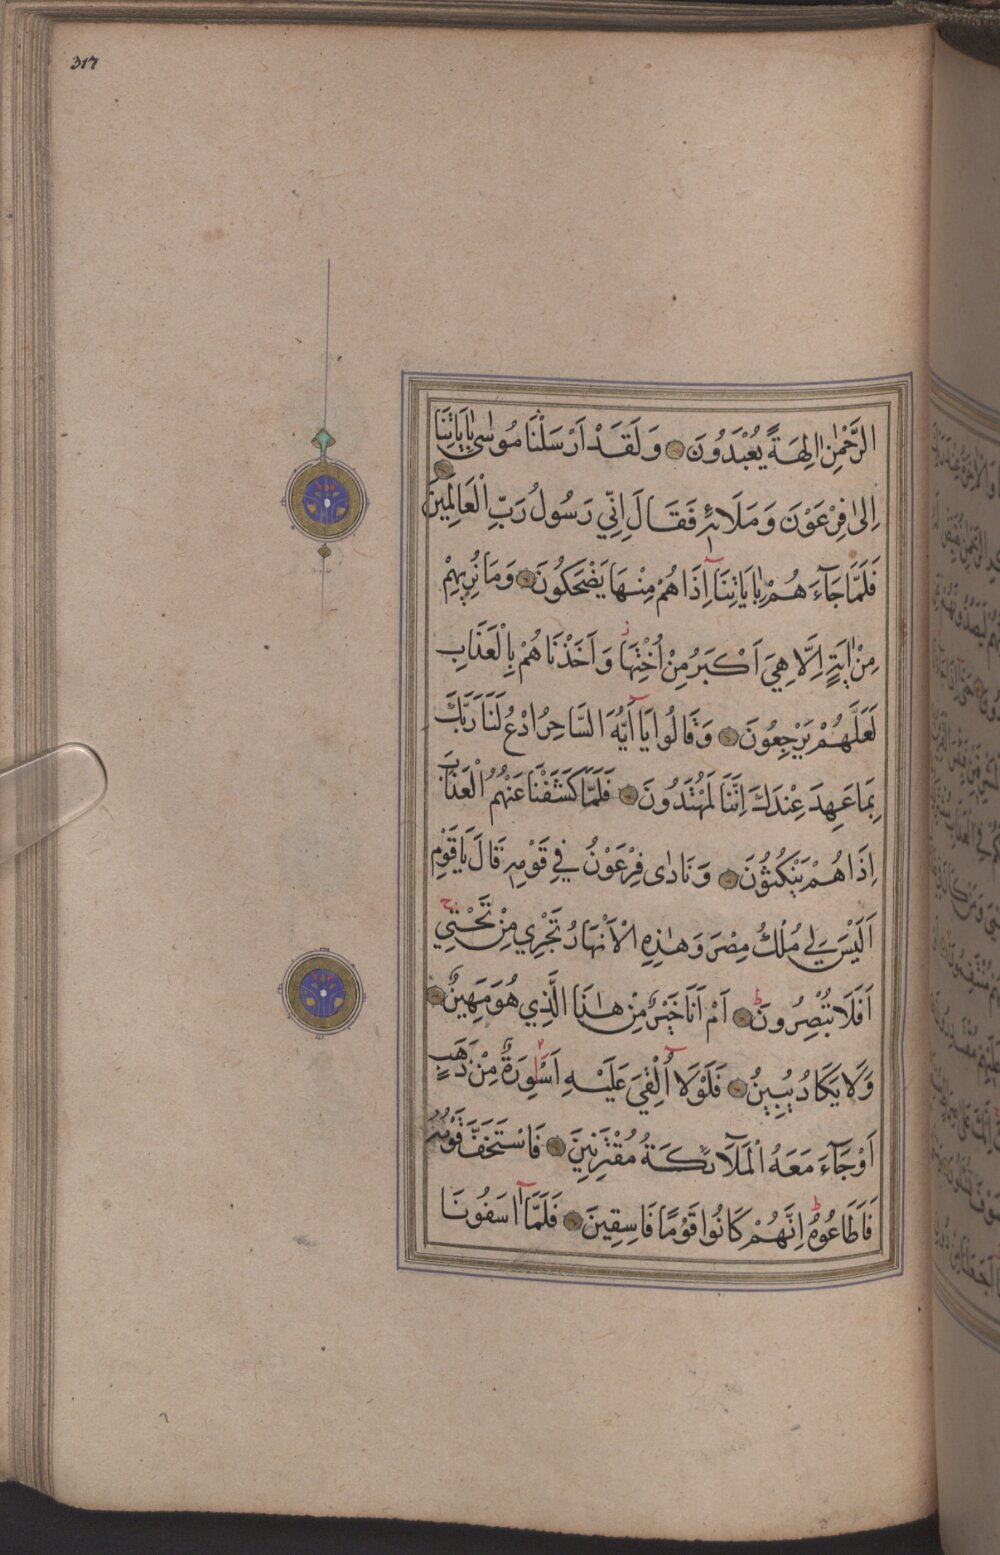 317
الرَّحْمٰنِ اٰلِهَةً يُعْبَدُونَ وَلَقَدْ اَرْسَلْنَا مُوسٰى بِاٰيَاتِنَا
اِلٰى فِرْعَوْنَ وَمَلَائِهِ فَقَالَ اِنِّي رَسُولُ رَبِّ الْعَالَمِينَ
فَلَمَّا جَآءَهُمْ بِاٰيَاتِنَآ اِذَا هُمْ مِنْهَا يَضْحَكُونَ وَمَا نُرِيهِمْ
مِنْ اٰيَةٍ اِلَّا هِيَ اَكْبَرُ مِنْ اُخْتِهَا وَاَخَذْنَاهُمْ بِالْعَذَابِ
لَعَلَّهُمْ يَرْجِعُونَ وَقَالُوا يَآ اَيُّهَ السَّاحِرُ ادْعُ لَنَا رَبَّكَ
بِمَا عَهِدَ عِنْدَكَ اِنَّنَا لَمُهْتَدُونَ فَلَمَّا كَشَفْنَا عَنْهُمُ الْعَذَابَ
اِذَا هُمْ يَنْكُثُونَ وَنَادٰى فِرْعَوْنُ فِي قَوْمِهِ قَالَ يَا قَوْمِ
اَلَيْسَ لِي مُلْكُ مِصْرَ وَهٰذِهِ الْاَنْهَارُ تَجْرِي مِنْ تَحْتِي
اَفَلَا تُبْصِرُونَ اَمْ اَنَا خَيْرٌ مِنْ هٰذَا الَّذِي هُوَ مَهِينٌ
وَلَا يَكَادُ يُبِينُ فَلَوْلَآ اُلْقِيَ عَلَيْهِ اَسْوِرَةٌ مِنْ ذَهَبٍ
اَوْ جَآءَ مَعَهُ الْمَلَآئِكَةُ مُقْتَرِنِينَ فَاسْتَخَفَّ قَوْمَهُ
فَاَطَاعُوهُ اِنَّهُمْ كَانُوا قَوْمًا فَاسِقِينَ فَلَمَّآ اٰسَفُونَا